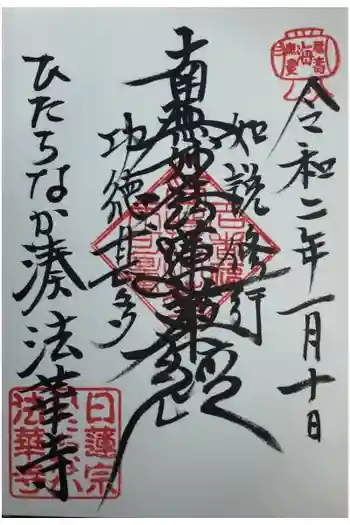 令和二年一月十日
如説修行
南無妙法蓮華経
功徳甚多
ひたちなか湊法華寺
日蓮宗
法華寺